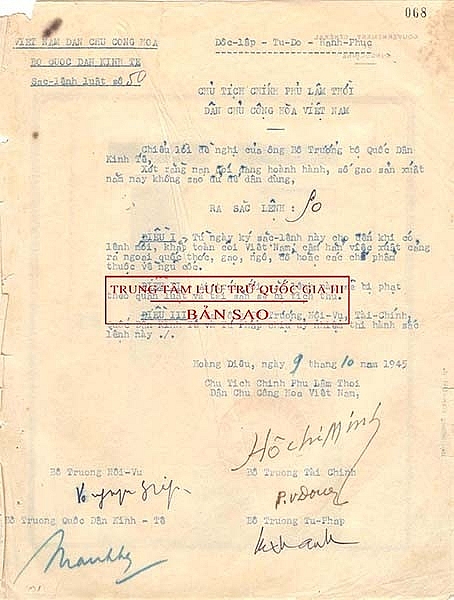 068
VIỆT NAM DÂN CHU CONG HOA
Độc-lập - Tu-Do - Hạnh-Phục
BO QUOC DAN KINH TE
Sac-lệnh luật số 50
CHU TỊCH CHÍNH PHỦ LÂM THỜI
DÂN CHỦ CÔNG HÒA VIỆT NAM
Chiếu lối đề nghị của ông Bộ Trưởng bộ Quốc Dân
Kinh Tế,
Xét rằng nạn đói đang hoành hành, số gạo sản xuất
năm nay không sao đủ để dân dùng,
RA SẮC LỆNH : 50
ĐIỀU I - Từ ngày ký sắc-lệnh này cho đến khi có
lệnh mới, khắp toàn cõi Việt Nam, cấm hẳn việc xuất cảng
ra ngoại quốc thóc, gạo, ngô, đỗ hoặc các chế phẩm
thuộc về ngũ cốc.
bị phạt
theo quân luật và tài sản sẽ bị tịch thu.
TRUNG TÂM LƯU TRỮ QUỐC GIA III
BẢN SAO
ĐIỀU III Trưởng, Nội-Vụ, Tài-Chính,
Quốc Dân Kinh Tế và Tư Pháp chịu uỷ nhiệm thi hành sắc
lệnh này ./.
Hoàng Diệu, ngày 9 tháng 10 năm 1945
Chu Tịch Chính Phu Lâm Thoi
Dân Chu Công Hoa Việt Nam,
Hồ Chí Minh
Bộ Truong Nội-Vu
Bộ Truong Tài Chinh
P.vĐong
Bộ Truong Quốc Dân Kinh - Tê
Bộ Truong Tu-Phap